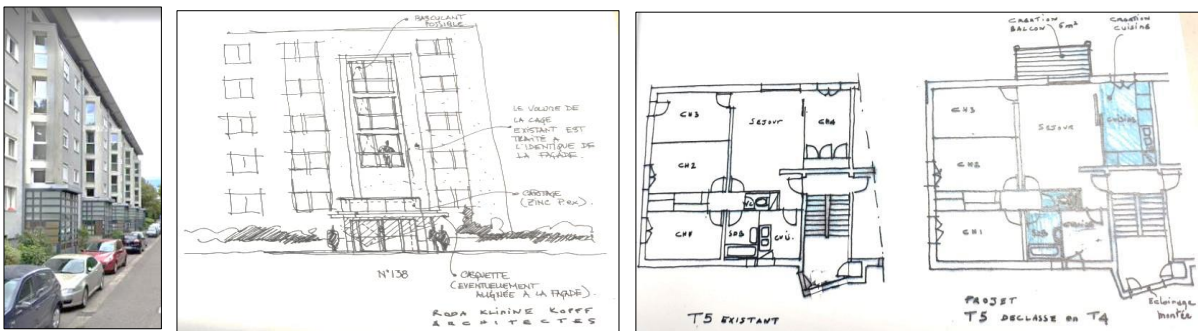 BASCULANT
POSSIBLE
LE VOLUME DE
LA CAGE
EXISTANT EST
TRAITÉ A
L'IDENTIQUE DE
LA FAÇADE.
(ZINC P.EX)
N°138
CASQUETTE
(EVENTUELLEMENT
ALIGNÉE A LA FAÇADE).
RODA KLIMINE KOPFF
ARCHITECTES
CH3
SEJOUR
CH4
CH2
WC
CH1
SDB
CUI.
T5 EXISTANT
CREATION
BALCON 6m²
CREATION
CUISINE
CH3
SEJOUR
CUISINE
CH2
CH1
SDB
PROJET
T5 DECLASSE en T4